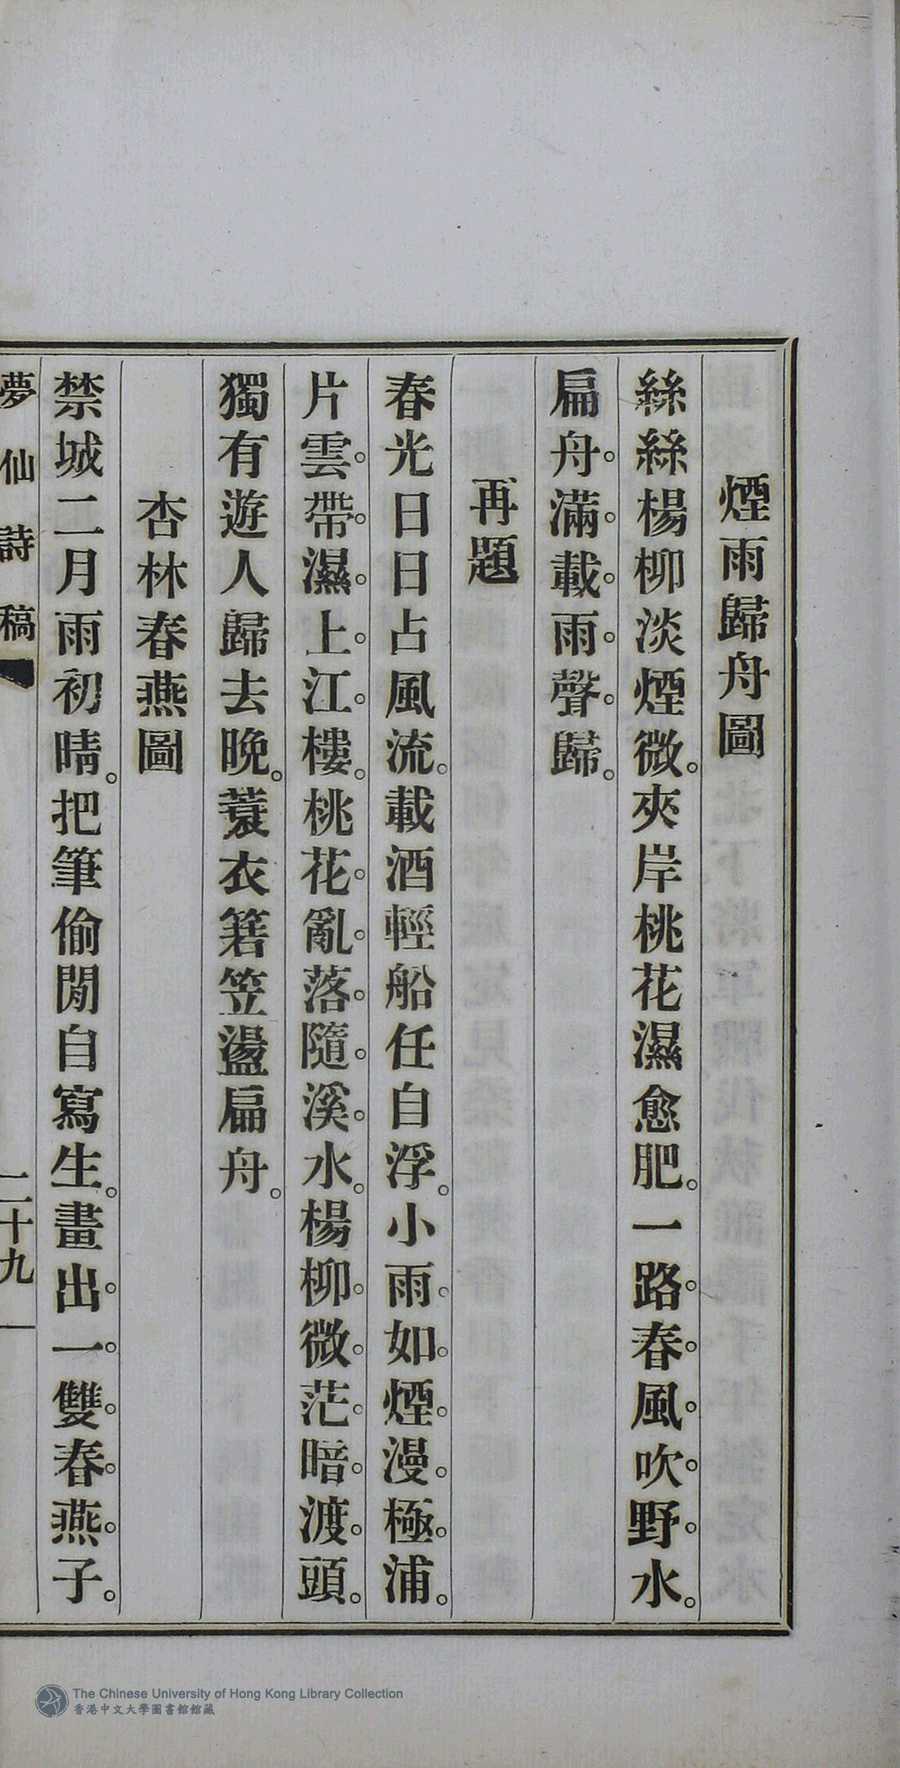 煙雨歸舟圖
絲絲楊柳淡煙微。夾岸桃花濕愈肥。一路春風吹野水。
扁舟滿載雨聲歸。
再題
春光日日占風流。載酒輕船任自浮。小雨如煙漫極浦。
片雲帶濕上江樓。桃花亂落隨溪水。楊柳微茫暗渡頭。
獨有遊人歸去晚。蓑衣箬笠盪扁舟。
杏林春燕圖
禁城二月雨初晴。把筆偷閒自寫生。畫出一雙春燕子。
夢仙詩稿
二十九
The Chinese University of Hong Kong Library Collection
香港中文大學圖書館館藏